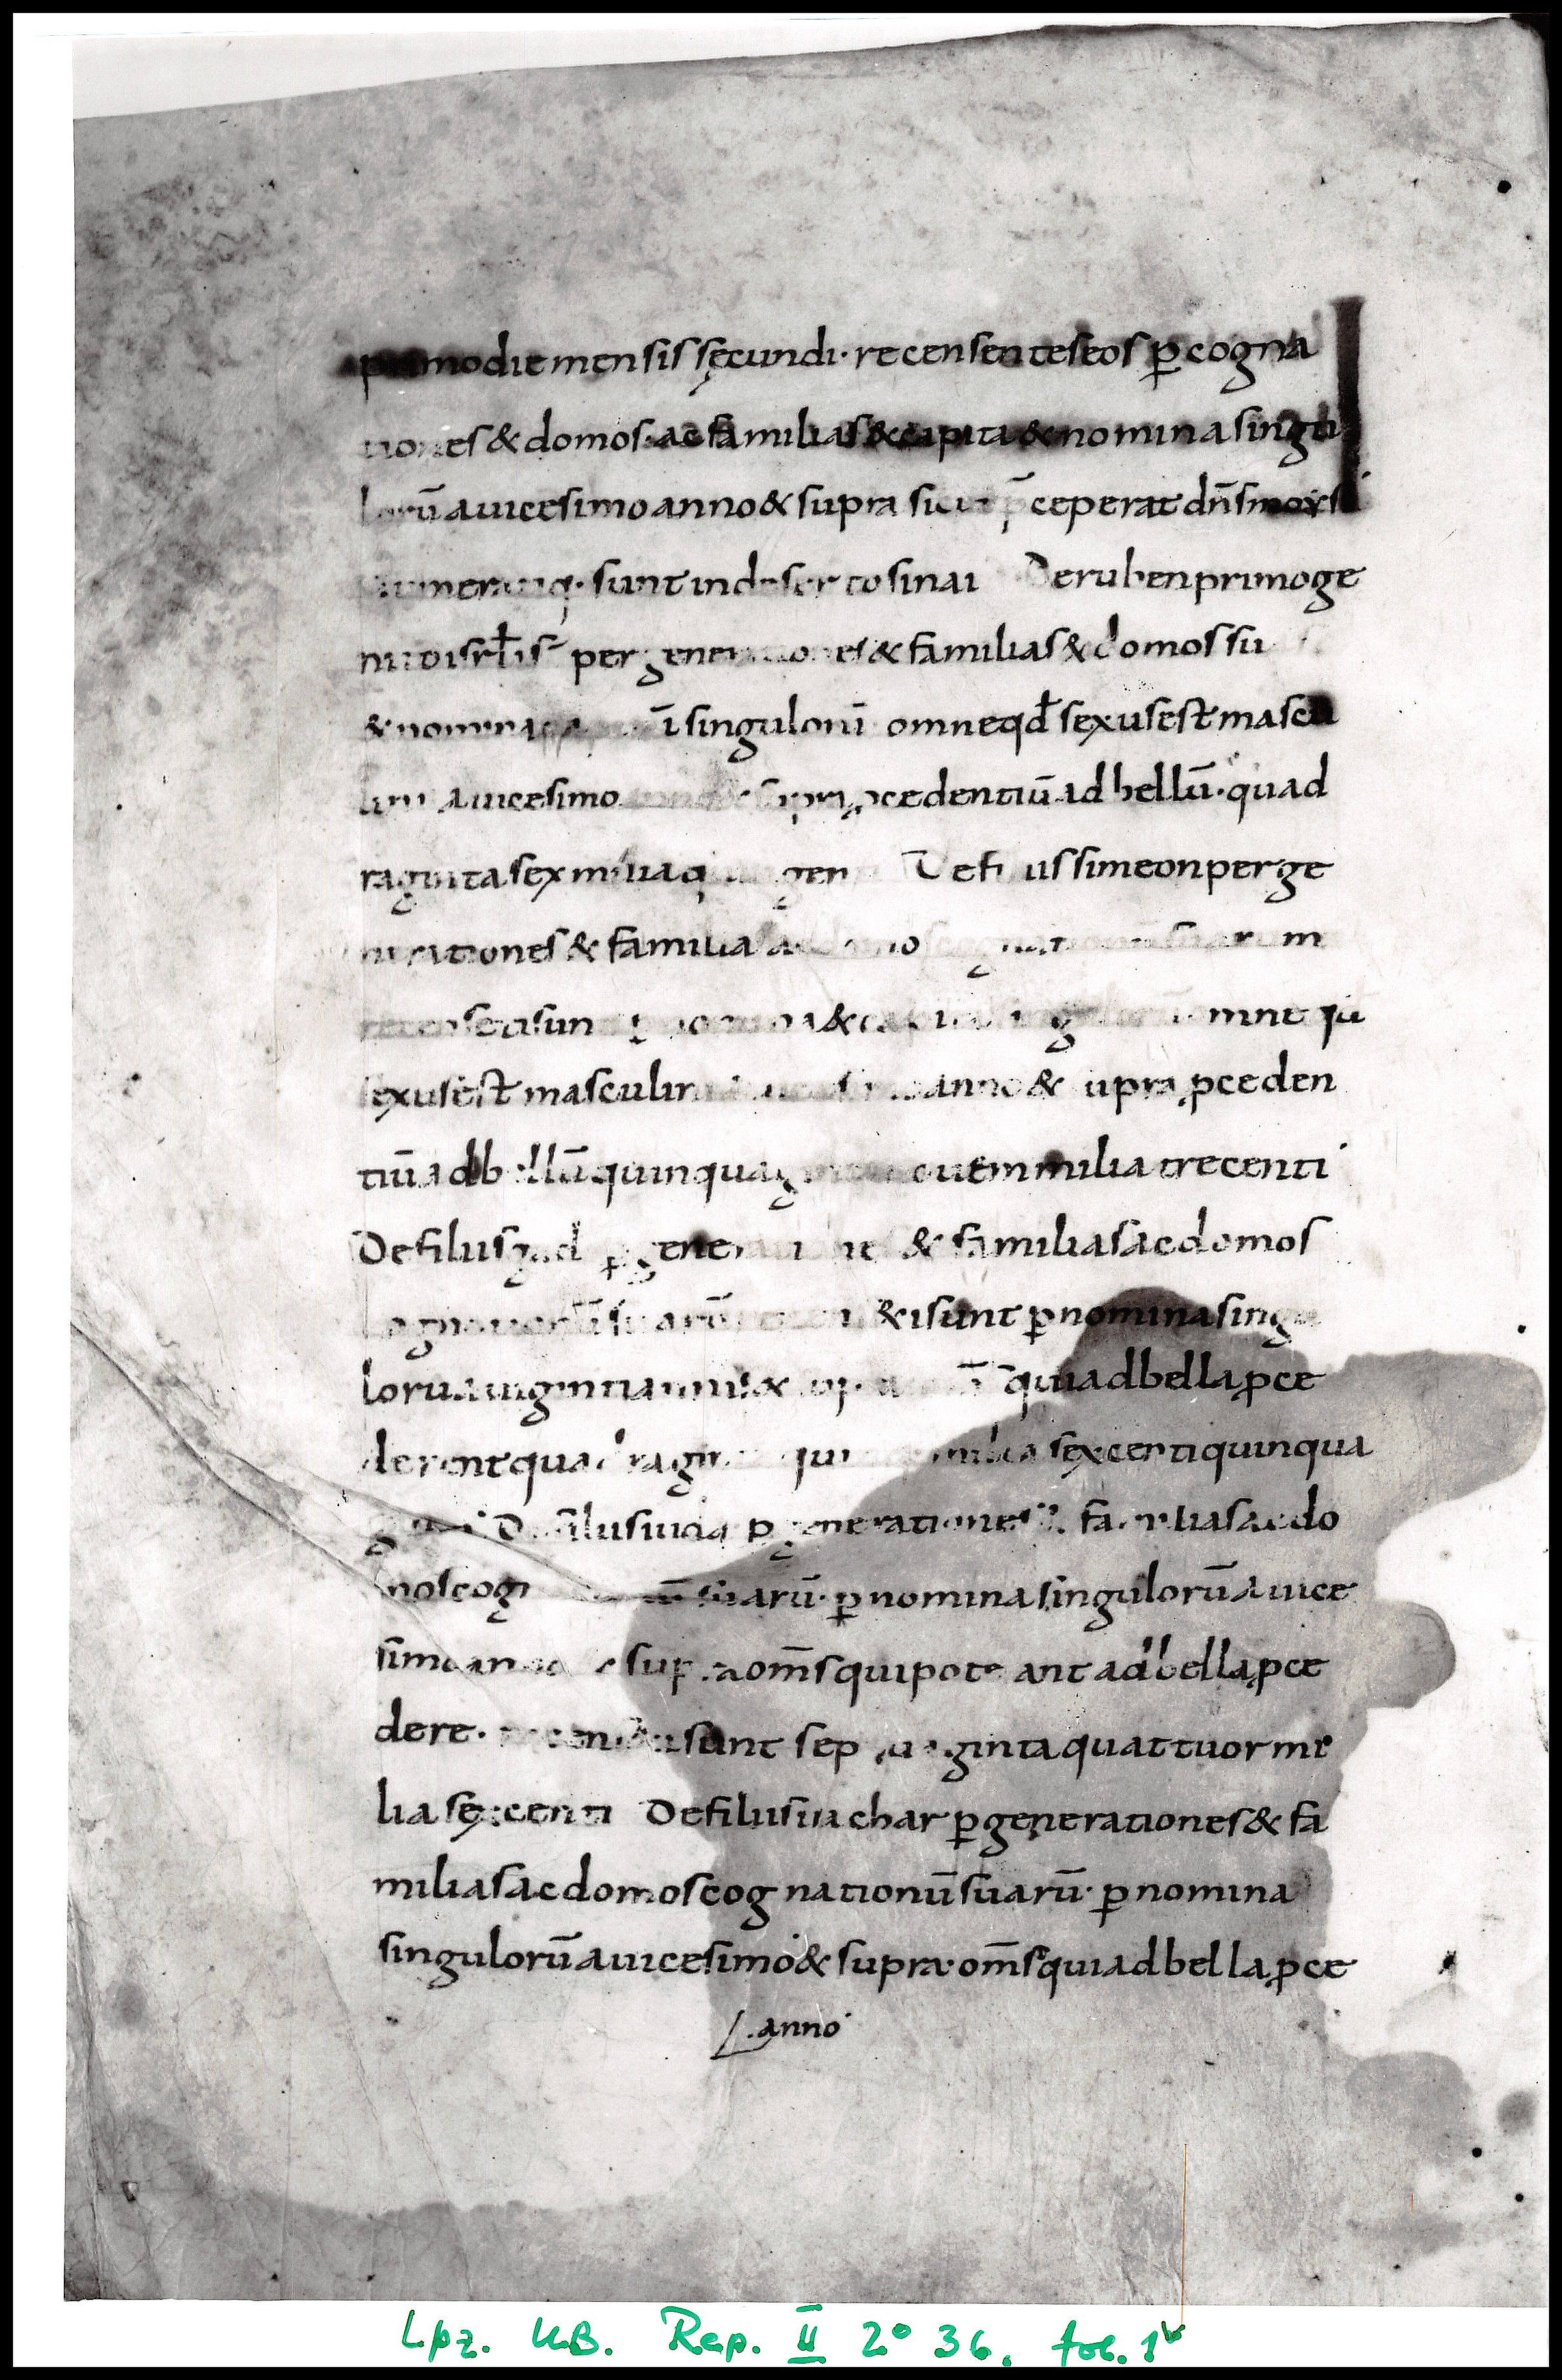 primo die mensis sęcundi· recensentes eos ꝑ cogna
tiones & domos· ac familias & capita & nomina singu
lorū a uicesimo anno & supra sicut p̄ceperat dn̄s moysi
numeratiq· sunt in deserto sinai De ruben primoge
nito isrl̄is per generationes & familias & domos su
& nomina ū singulorū omne qd̄ sexus est mascu
lini a uicesimo anno & supra ꝓcedentiū ad bellū· quad
raginta sex milia quingenti De filiis simeon per ge
nerationes & familias ac domos cognationū suarum
recensiti sunt ꝑ nomina & capita singulorū omne qd̄
sexus est masculini a uicesimo anno & supra ꝓceden
tiū ad bellū quinquaginta nouem milia trecenti
De filiis gad ꝑ generationes & familias ac domos
cognationū suarū recensiti sunt ꝑ nomina singu
lorū a uiginti annis & supra om̄s qui ad bella ꝓce
derent quadraginta quinque milia sexcenti quinqua
ginta De filiis iuda ꝑ generationes & familias ac do
mos cognationū suarū· ꝑ nomina singulorū a uice
simo anno & supra om̄s qui poterant ad bella ꝓce
dere· recensiti sunt septuaginta quattuor mi
lia sexcenti De filiis isachar ꝑ generationes & fa
milias ac domos cognationū suarū· ꝑ nomina
singulorū a uicesimo & supra· om̄s qui ad bella ꝓce
anno
Lpz. UB. Rep. II 2° 36. fol. 1v